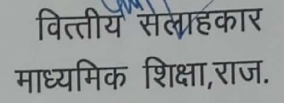 वित्तीय सलाहकार
माध्यमिक शिक्षा,राज.